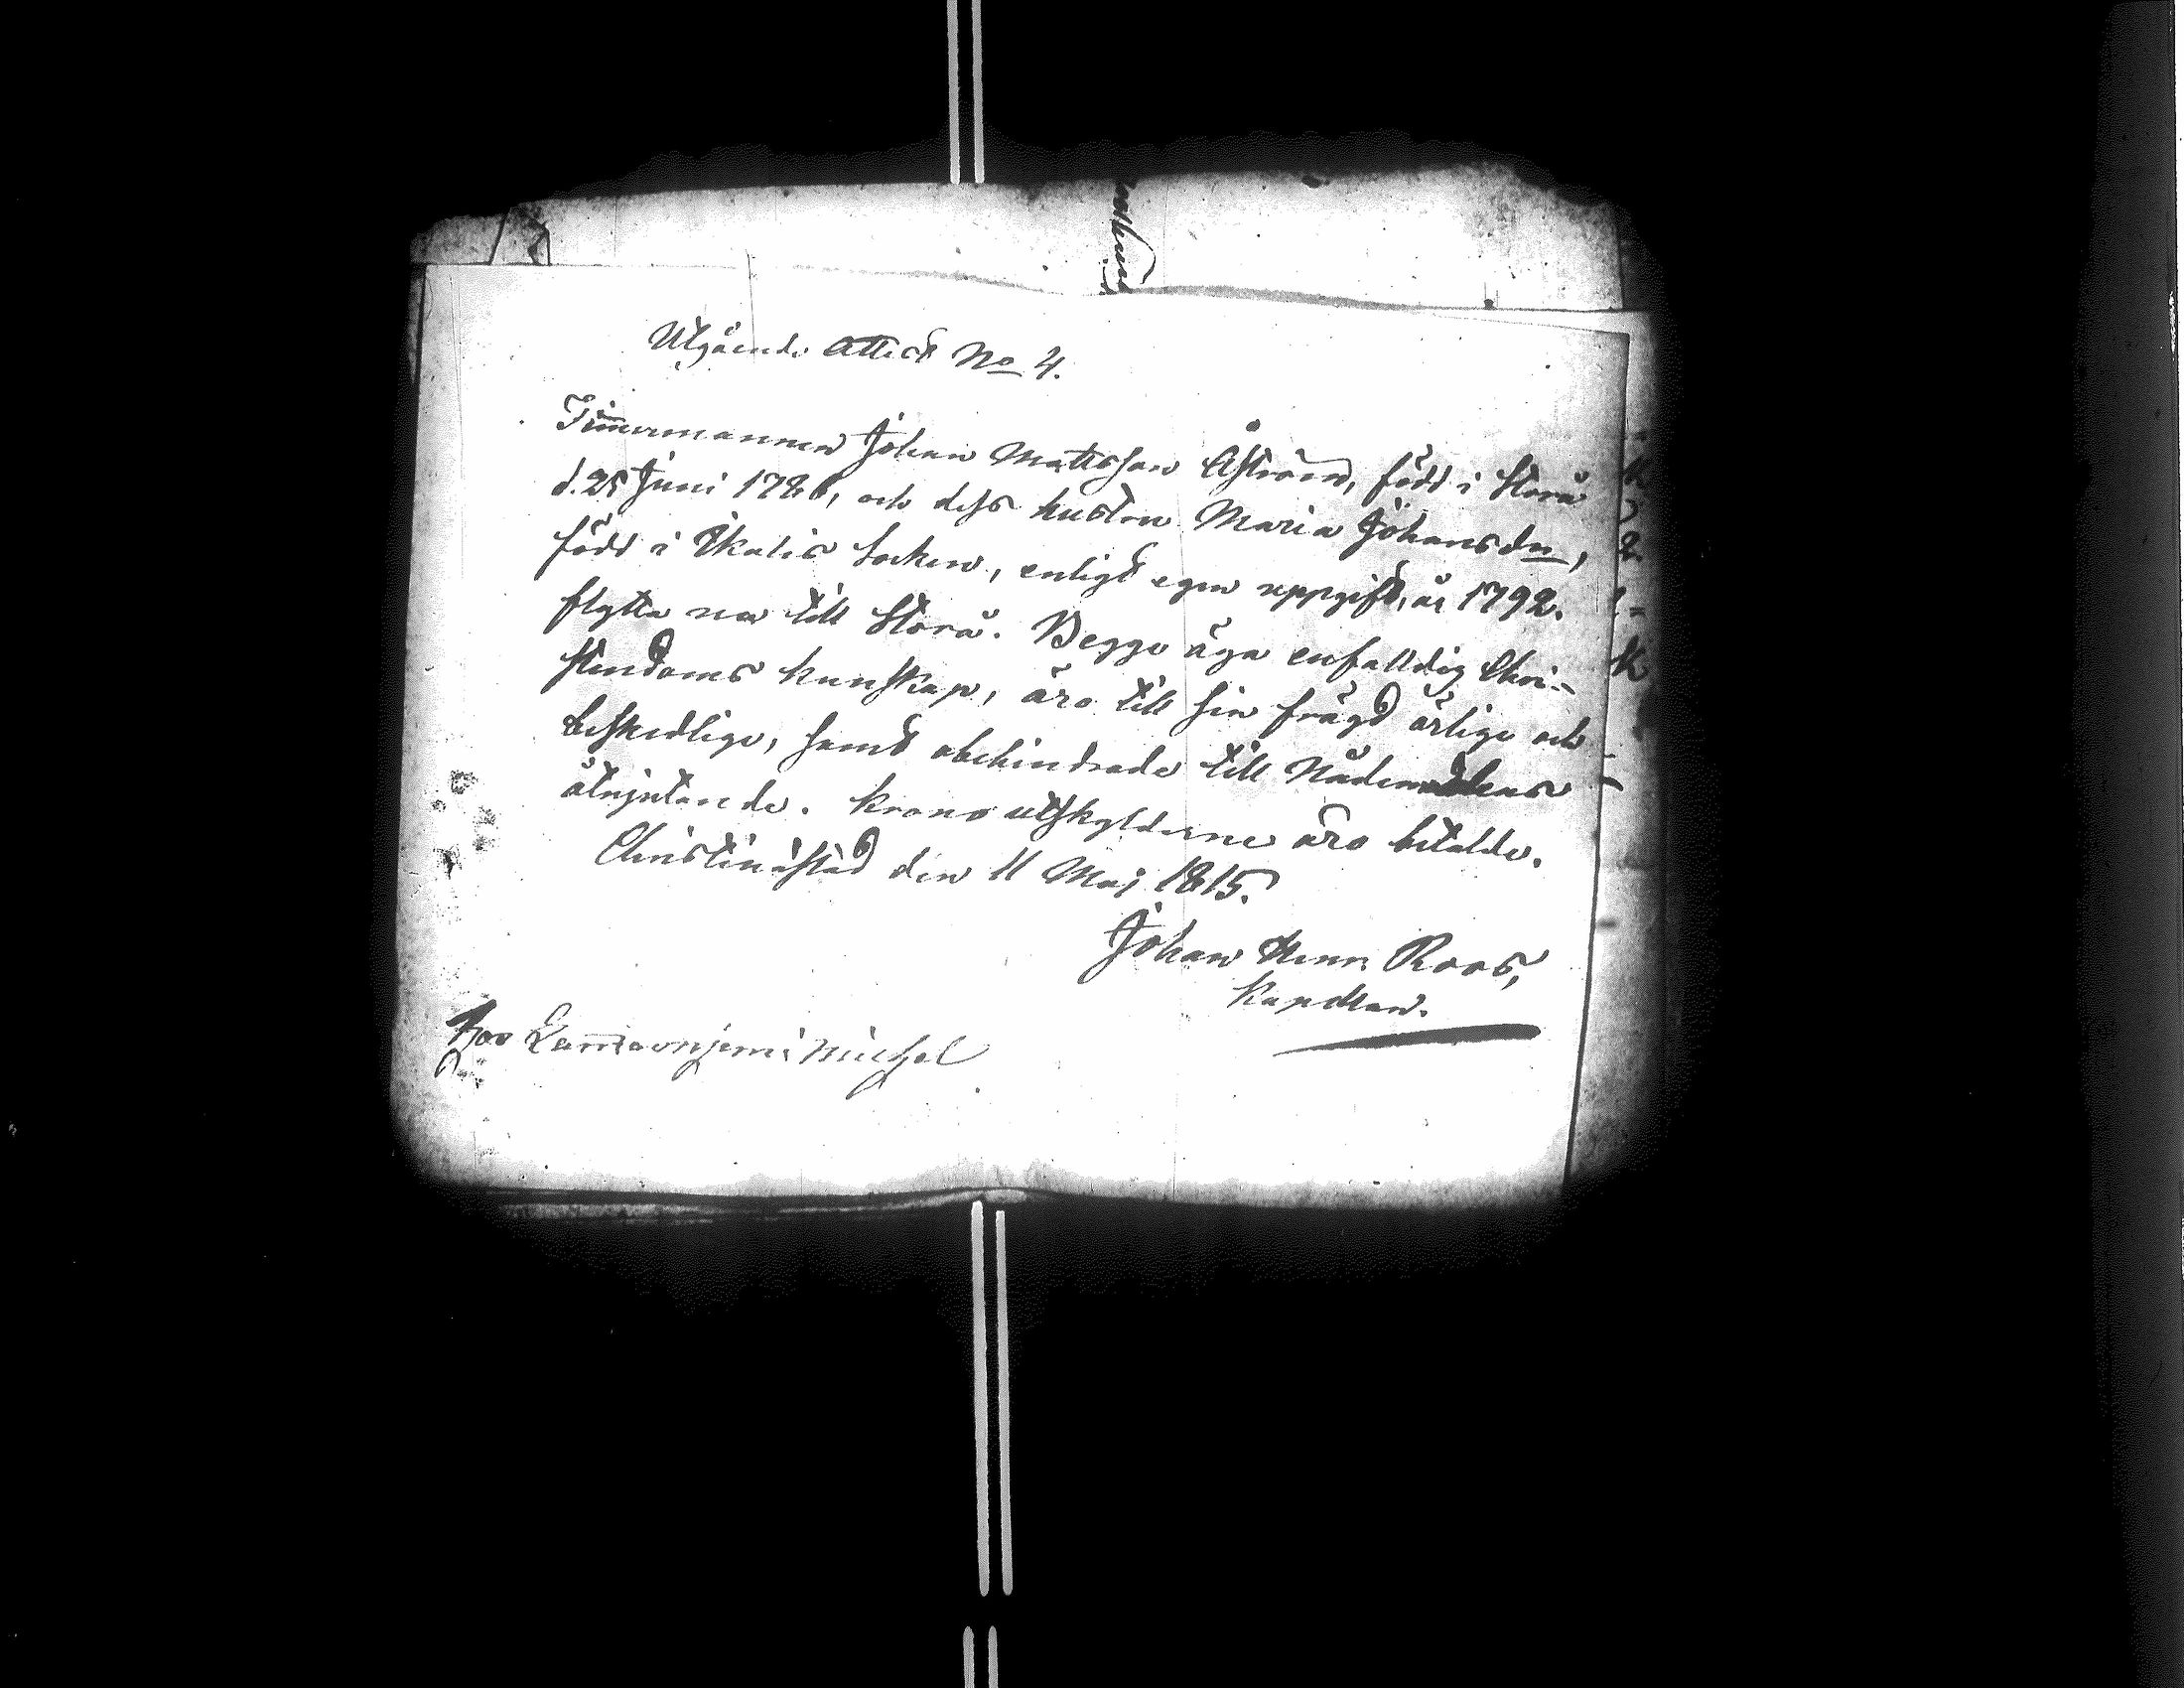 Utgående Attest No 4.
Timmermannen Johan Mattsson Åström, född i Storå
d. 25 Junii 1786, och dess hustru Maria Johansdr,
född i Ikalis socken, enligt egen uppgift, år 1792.
flytta nu till Storå. Begge äga enfalldig Chri-
stendoms kunskap, äro till sin frägd ärlige och
beskedlige, samt obehindrade till Nådemedlens
åtnjutande. Krono utskylderne äro betalde.
Christinæstad den 11 Maj 1815.
Johan Henr. Roos,
Kapellan.
hos